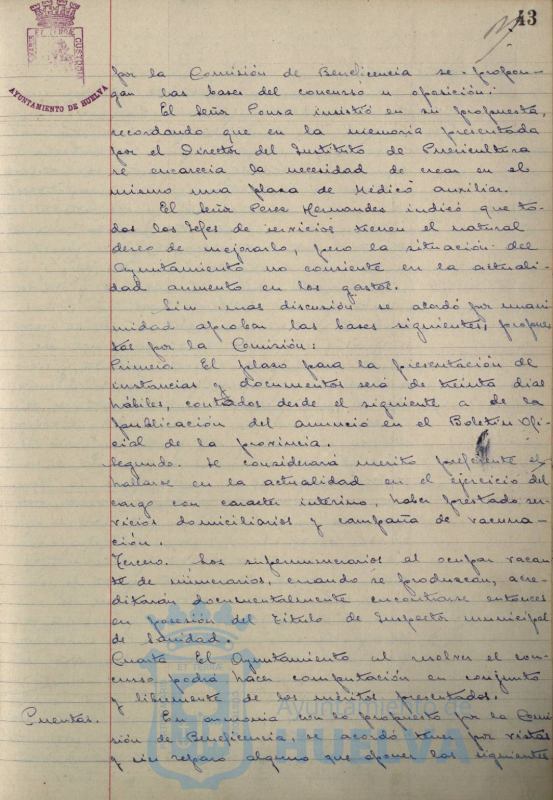 43
AYUNTAMIENTO DE HUELVA
por la Comisión de Beneficencia se propon-
gan las bases del concurso u oposición.
El Señor Pousa insistió en su propuesta,
recordando que en la memoria presentada
por el Director del Instituto de Puericultura
se encarecia la necesidad de crear en el
mismo una plaza de Médico auxiliar.
El Señor Perez Hernandez indicó que to-
dos los Jefes de servicios tienen el natural
deseo de mejorarlo, pero la situación del
Ayuntamiento no consiente en la actuali-
dad aumento en los gastos.
Sin mas discusión se acordó por unani-
midad aprobar las bases siguientes, propues-
tas por la Comisión:
Primera El plazo para la presentación de
instancias y documentos será de treinta dias
hábiles, contados desde el siguiente a de la
publicación del anuncio en el Boletin Ofi-
cial de la provincia.
Segundo. Se considerará merito preferente el
hallarse en la actualidad en el ejercicio del
cargo con caracter interino, haber prestado ser-
vicios domiciliarios y campaña de vacuna-
ción.
Tercero. Los supernumerarios al ocupar vacan-
te de numerarios, cuando se produzcan, acre-
ditarán documentalmente encontrarse entonces
en posesión del Título de Inspector municipal
de Sanidad.
Cuarta El Ayuntamiento al resolver el con-
curso podrá hacer computación en conjunto
y libremente de los meritos presentados.
Cuentas. En armonia con lo propuesto por la Comi-
sión de Beneficencia, se acordó tener por vistas
y sin reparo alguno que oponer las siguientes
Ayuntamiento de
HUELVA